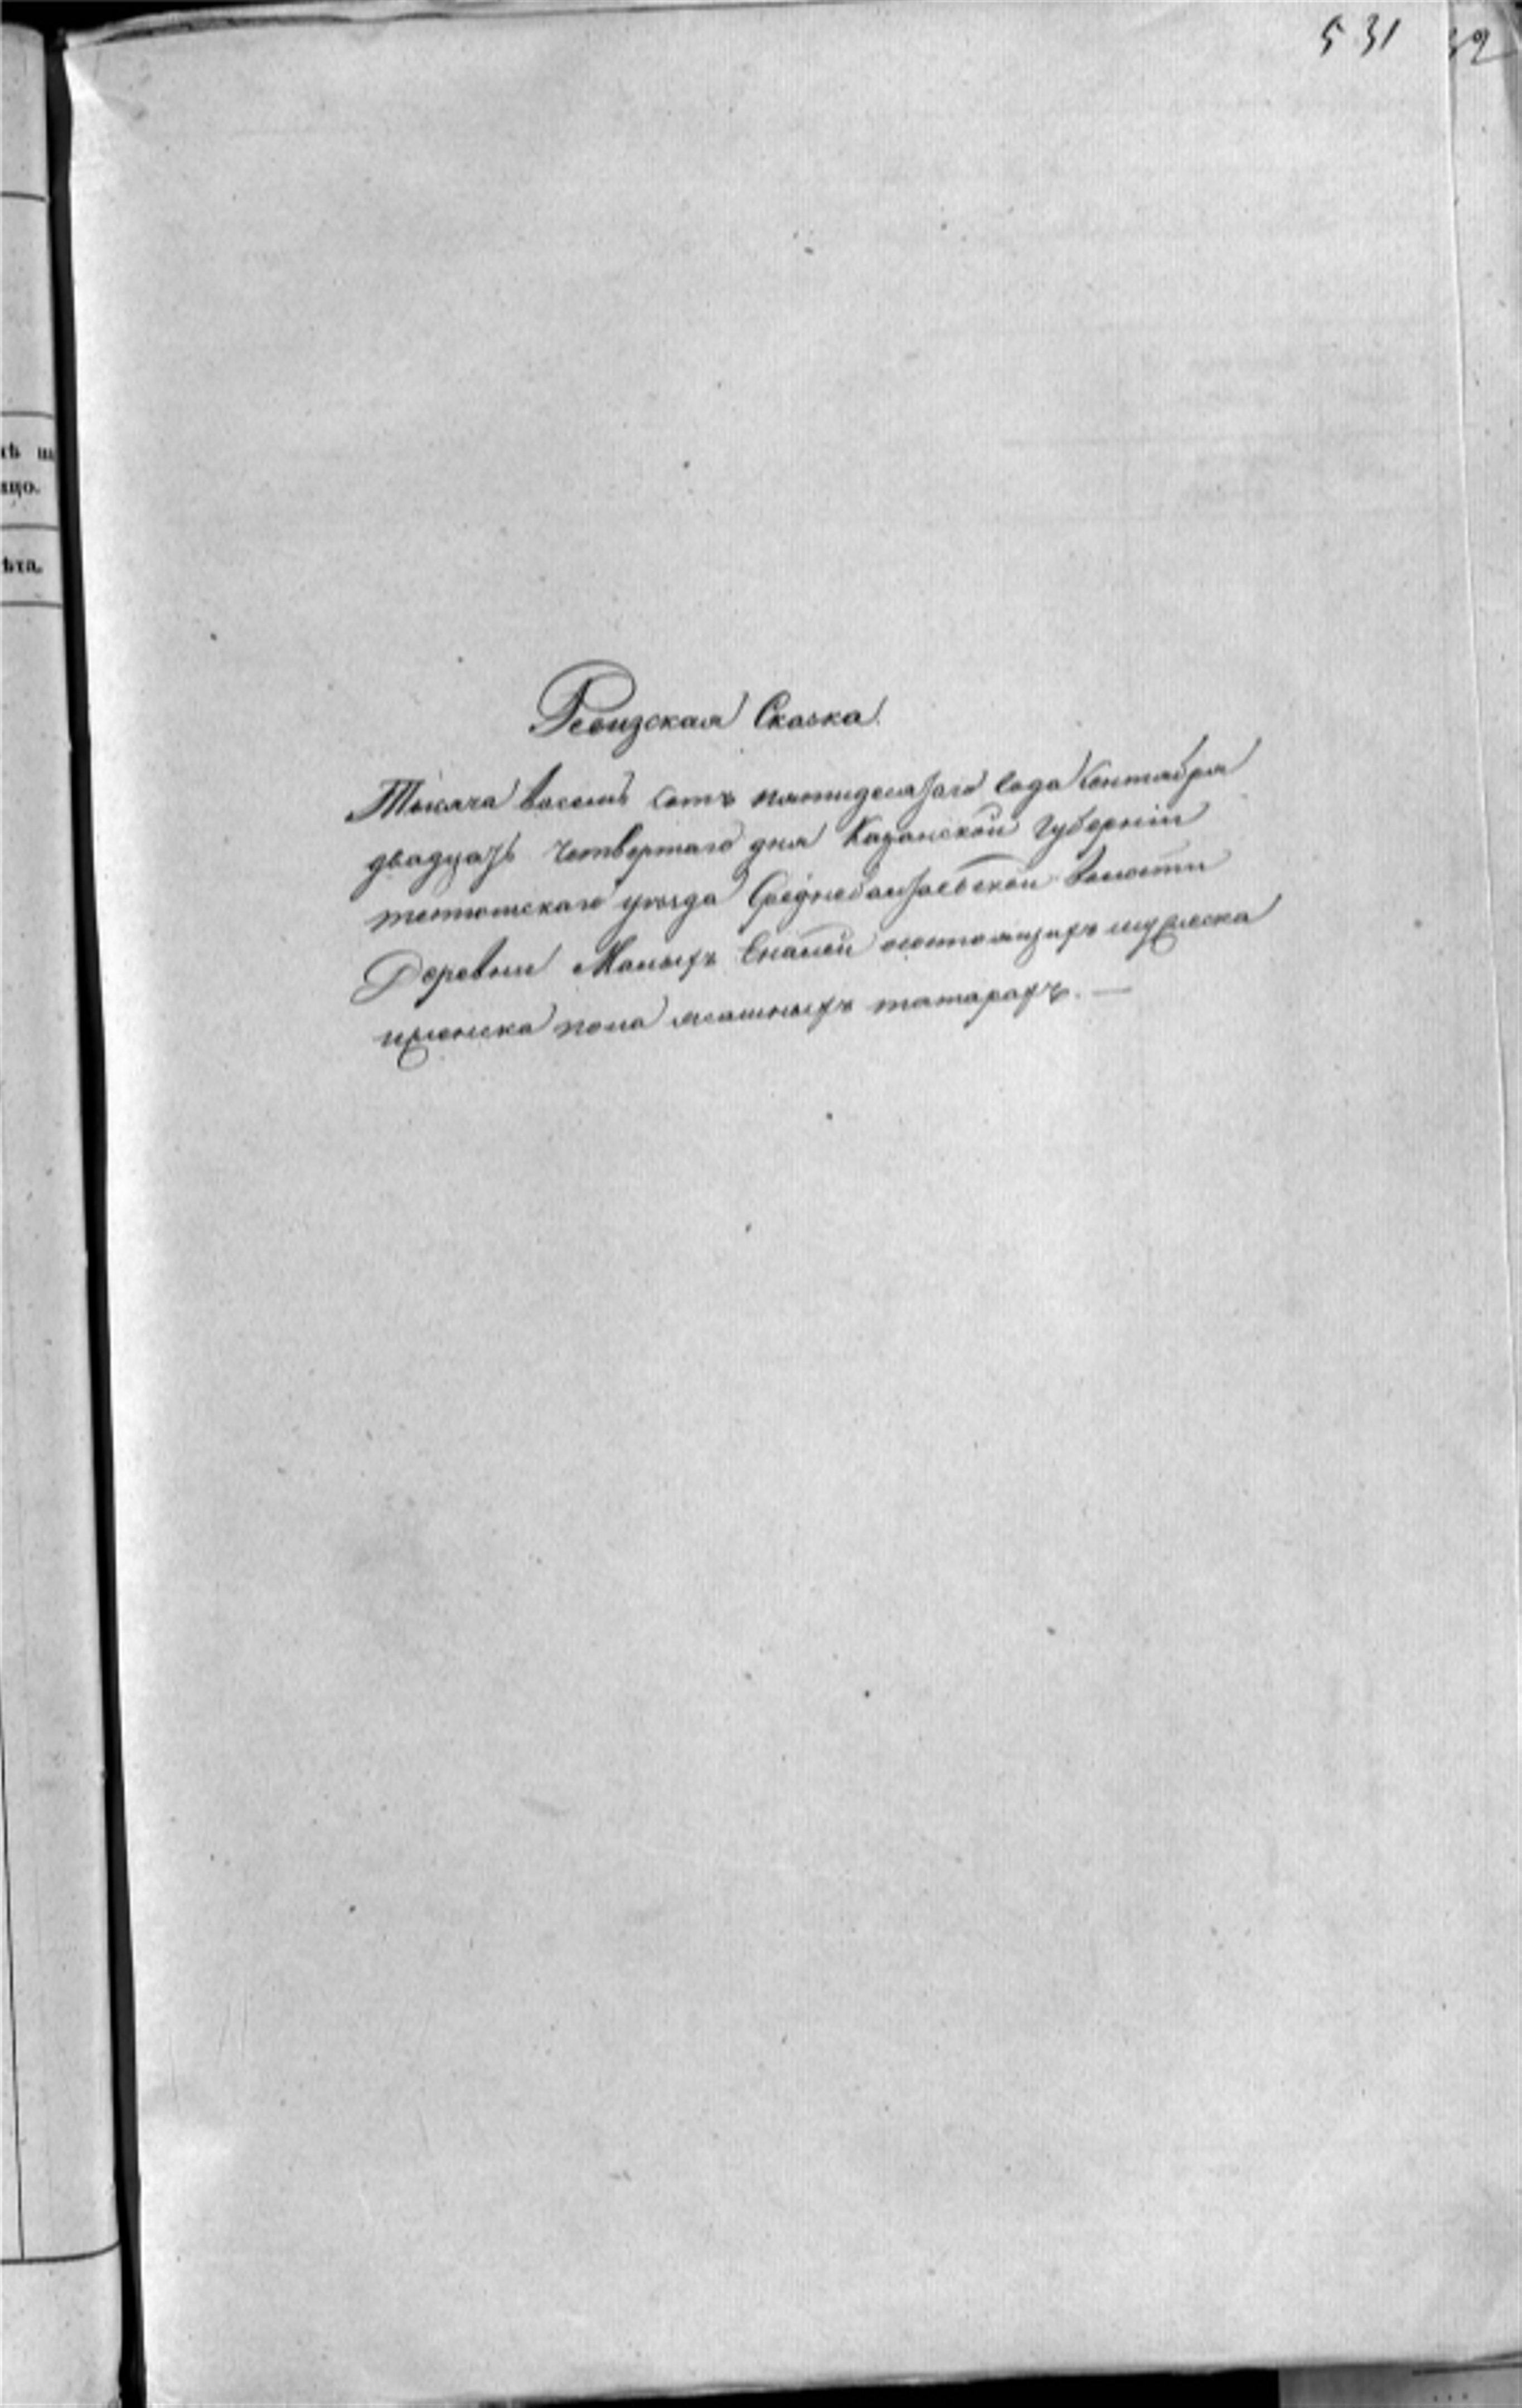 531
32
хъ на
ицо.
ѣта.
Ревизская Сказка.
Тысяча восемь сотъ пятидесятаго года Сентября
двадцать четвертаго дня Казанской Губерніи
тетюшскаго уѣзда Среднебалтаевской волости
Деревни Малыхъ Еналей состоящихъ мужеска
и женска пола ясашныхъ татарахъ. —